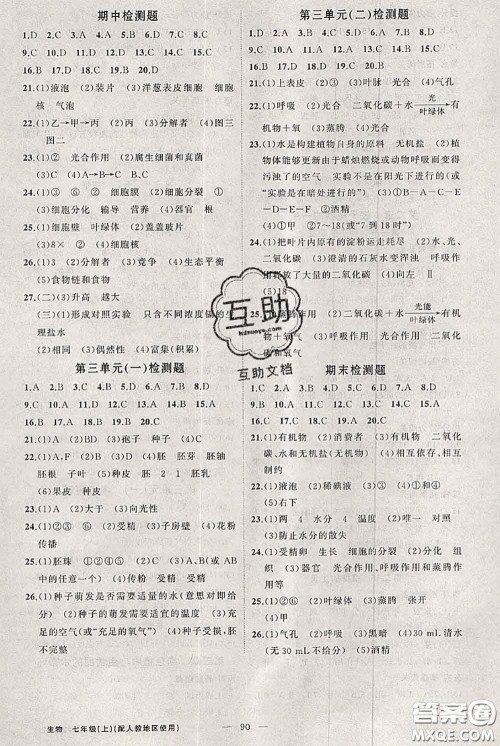 期中检测题
1.D　2.C　3.A　4.D　5.D　6.B　7.D　8.D
9.C　10.D　11.C　12.D　13.A　14.D　15.C
16.B　17.B　18.C　19.D　20.D
21.(1)液泡　(2)装片　(3)洋葱表皮细胞　细胞
核　气泡
22.(1)乙→甲→丙　(3)分解者　(4)图三
图二
23.(1)①　②　光合作用　(2)腐生细菌和真菌
24.(1)③　②　⑥　细胞膜　(2)细胞分裂　①
(3)细胞分化　输导　营养　(4)器官　根
25.(1)细胞壁　叶绿体　(2)盖盖玻片
(3)8×　②　④
26.(1)分解者　(2)3　(3)竞争　(4)生态平衡
(5)食物链和食物网
27.(二)(3)升高　越大
(三)(1)形成对照实验　只含不同浓度镉的生
理盐水
(2)相同　(3)偶然性　(4)富集(积累)
第三单元(一)检测题
1.A　2.B　3.D　4.C　5.A　6.B　7.D　8.D
9.C　10.A　11.B　12.C　13.B　14.B　15.A
16.D　17.C　18.C　19.D　20.D
21.(1)A　(2)BD　(3)孢子　种子　(4)D
22.(1)A、F　(2)A　B　C　D　胚　胚芽　胚轴
胚根　子叶　(5)种皮　胚　1　2　胚　胚乳
(6)果皮　种皮
23.(1)D　(2)A　(3)>　(4)向光性
24.(1)①②③　⑥　(2)受精　(3)子房壁　(4)花粉
传播
25.(1)胚珠　①②④⑤　(2)C　(3)A、B(或AB
中任意一种)　(4)传粉　受精　(5)A
26.(1)种子萌发是否需要适量的水(意思对即得
分)　(2)种子的萌发需要适宜的温度　(3)充
足的空气(或“充足的氧气”)　(4)种子受损,胚
不完整
第三单元(二)检测题
1.D　2.C　3.A　4.C　5.C　6.A　7.B　8.D
9.C　10.D　11.C　12.D　13.C　14.A　15.A
16.B　17.D　18.C　19.B　20.D
21.(1)上表皮　(2)③　(3)叶脉　光合　(4)气孔
22.(1)呼吸　(2)光合　二氧化碳＋水 光/叶绿体→ 有
机物＋氧　(3)蒸腾
23.(1)水是构建植物自身的原料　(2)光能　(4)植
物体能够更新由于蜡烛燃烧或动物呼吸而变得
污浊了的空气　实验不是在阳光下进行的(或
“实验是在暗处进行的”)　(3)④　(4)A—C—
B—E—D—F　②酒精
(5)①叶片　②7～18(或“7到18时”)
24.(1)把叶片内原有的淀粉运走耗尽　(2)水　二
氧化碳　(3)澄清的石灰水浑浊　植物呼吸作
用释放了大量的二氧化碳　(4)向左　Ⅱ
(5)18
25.(1)蒸腾作用　(2)③　二氧化碳＋水 光能/叶绿体→
有机物＋氧气　(3)②　呼吸作用　(4)二氧化
碳和氧气
期末检测题
1.C　2.D　3.D　4.C　5.D　6.D　7.B　8.D
9.C　10.A　11.B　12.D　13.C　14.C　15.A
16.D　17.C　18.C　19.B　20.A
21.(1)有机物　(2)消费者　(3)有机物　二氧化
碳、水和无机盐(无机物)　(4)相互依存、相互
制约
22.(1)液泡　(2)稀碘液　(3)①　③　(4)①
(5)右下
23.(1)两　4　水分　温度　(2)唯一
(3)防止水分的散失
24.(1)受精卵　生长　细胞的分裂　(2)分化　组
织　(3)器官　③　(4)光合作用和呼吸、蒸腾
作用等
25.(1)②⑥　(2)叶绿体　(3)蒸腾　张开
(4)D
26.(1)气孔　(2)呼吸　(3)黑暗　(4)30 mL清水
(无“30 mL”不给分)　(5)酒精　变蓝
互助
互助文档
生物　七年级(上)(配人教地区使用)
— 90 —
答案圈
MXQE.COM